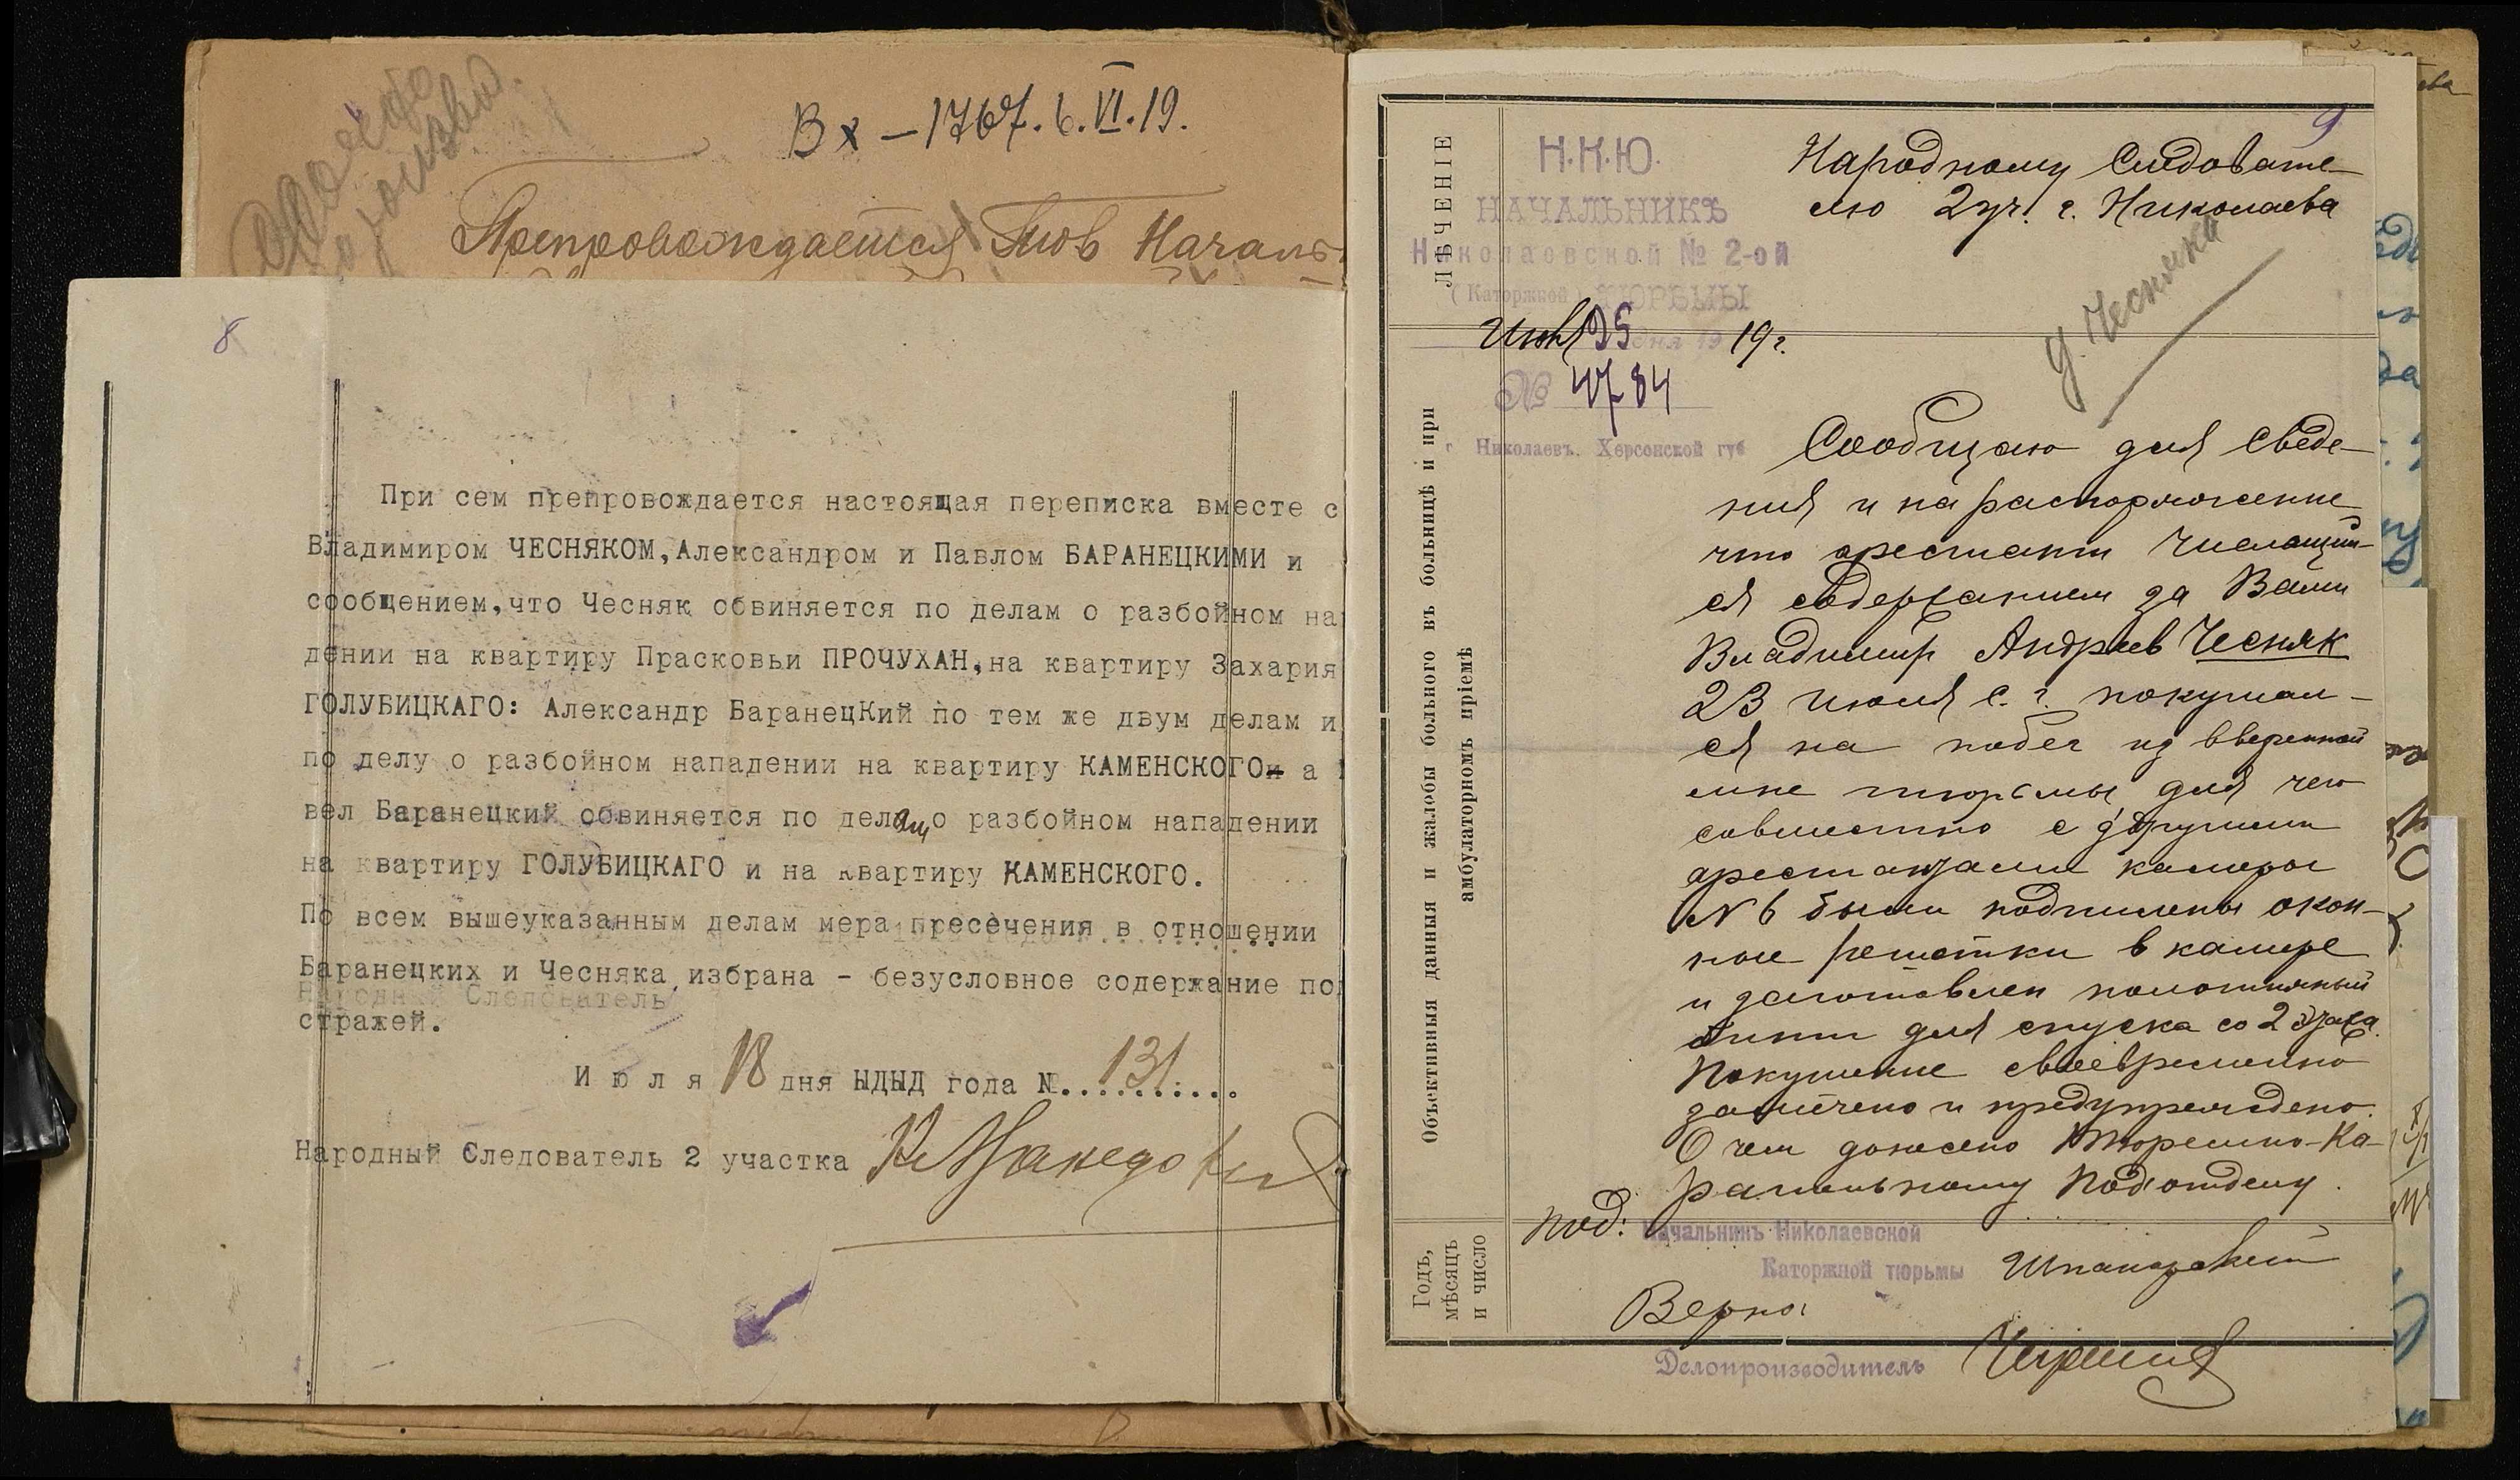 Вх – 1767. 6. VI. 19.
Препровождается Тов Началь
8
При сем препровождается настоящая переписка вместе с
Владимиром ЧЕСНЯКОМ, Александром и Павлом БАРАНЕЦКИМИ и
сообщением, что Чесняк обвиняется по делам о разбойном на
дении на квартиру Прасковьи ПРОЧУХАН, на квартиру Захария
ГОЛУБИЦКАГО: Александр БаранецКий по тем же двум делам и
по делу о разбойном нападении на квартиру КАМЕНСКОГО а
вел Баранецкий обвиняется по делам о разбойном нападении
на квартиру ГОЛУБИЦКАГО и на квартиру КАМЕНСКОГО.
По всем вышеуказанным делам мера пресечения в отношении
Баранецких и Чесняка избрана – безусловное содержание под
Народный Следователь
стражей.
Июля 18 дня ЫДЫД года N. 131
Народный Следователь 2 участка
9
Н.К.Ю.
НАЧАЛЬНИКЪ
Николаовской № 2-ой
(Каторжной) ТЮРЬМЫ
Июл 25 дня 19 19 г.
№ 4784
г Николаевъ. Херсонской губ
Народному Следовате-
лю 2 уч. г. Николаева
д. Чесняка
Сообщаю для сведе-
ния и на распоряжение
что арестант числящий-
ся содержанием за Вами
Владимир Андреев Чесняк
23 июля с. г. покушал-
ся на побег из вверенной
мне тюрьмы, для чего
совместно с другими
арестантами камеры
N 6 были подпилены окон-
ные решетки в камере
и заготовлен полотняный
для спуска со 2 этажа.
Покушение своевременно
замечено и предупреждено.
О чем донесено Тюремно-Ка-
рательному Подотделу.
под: Начальникъ Николаевской
Каторжной тюрьмы
Верно:
Делопроизводитель
ЛѢЧЕНІЕ
Объективныя данныя и жалобы больного въ больницѣ и при
амбулаторномъ пріемѣ
Годъ,
мѣсяцъ
и число